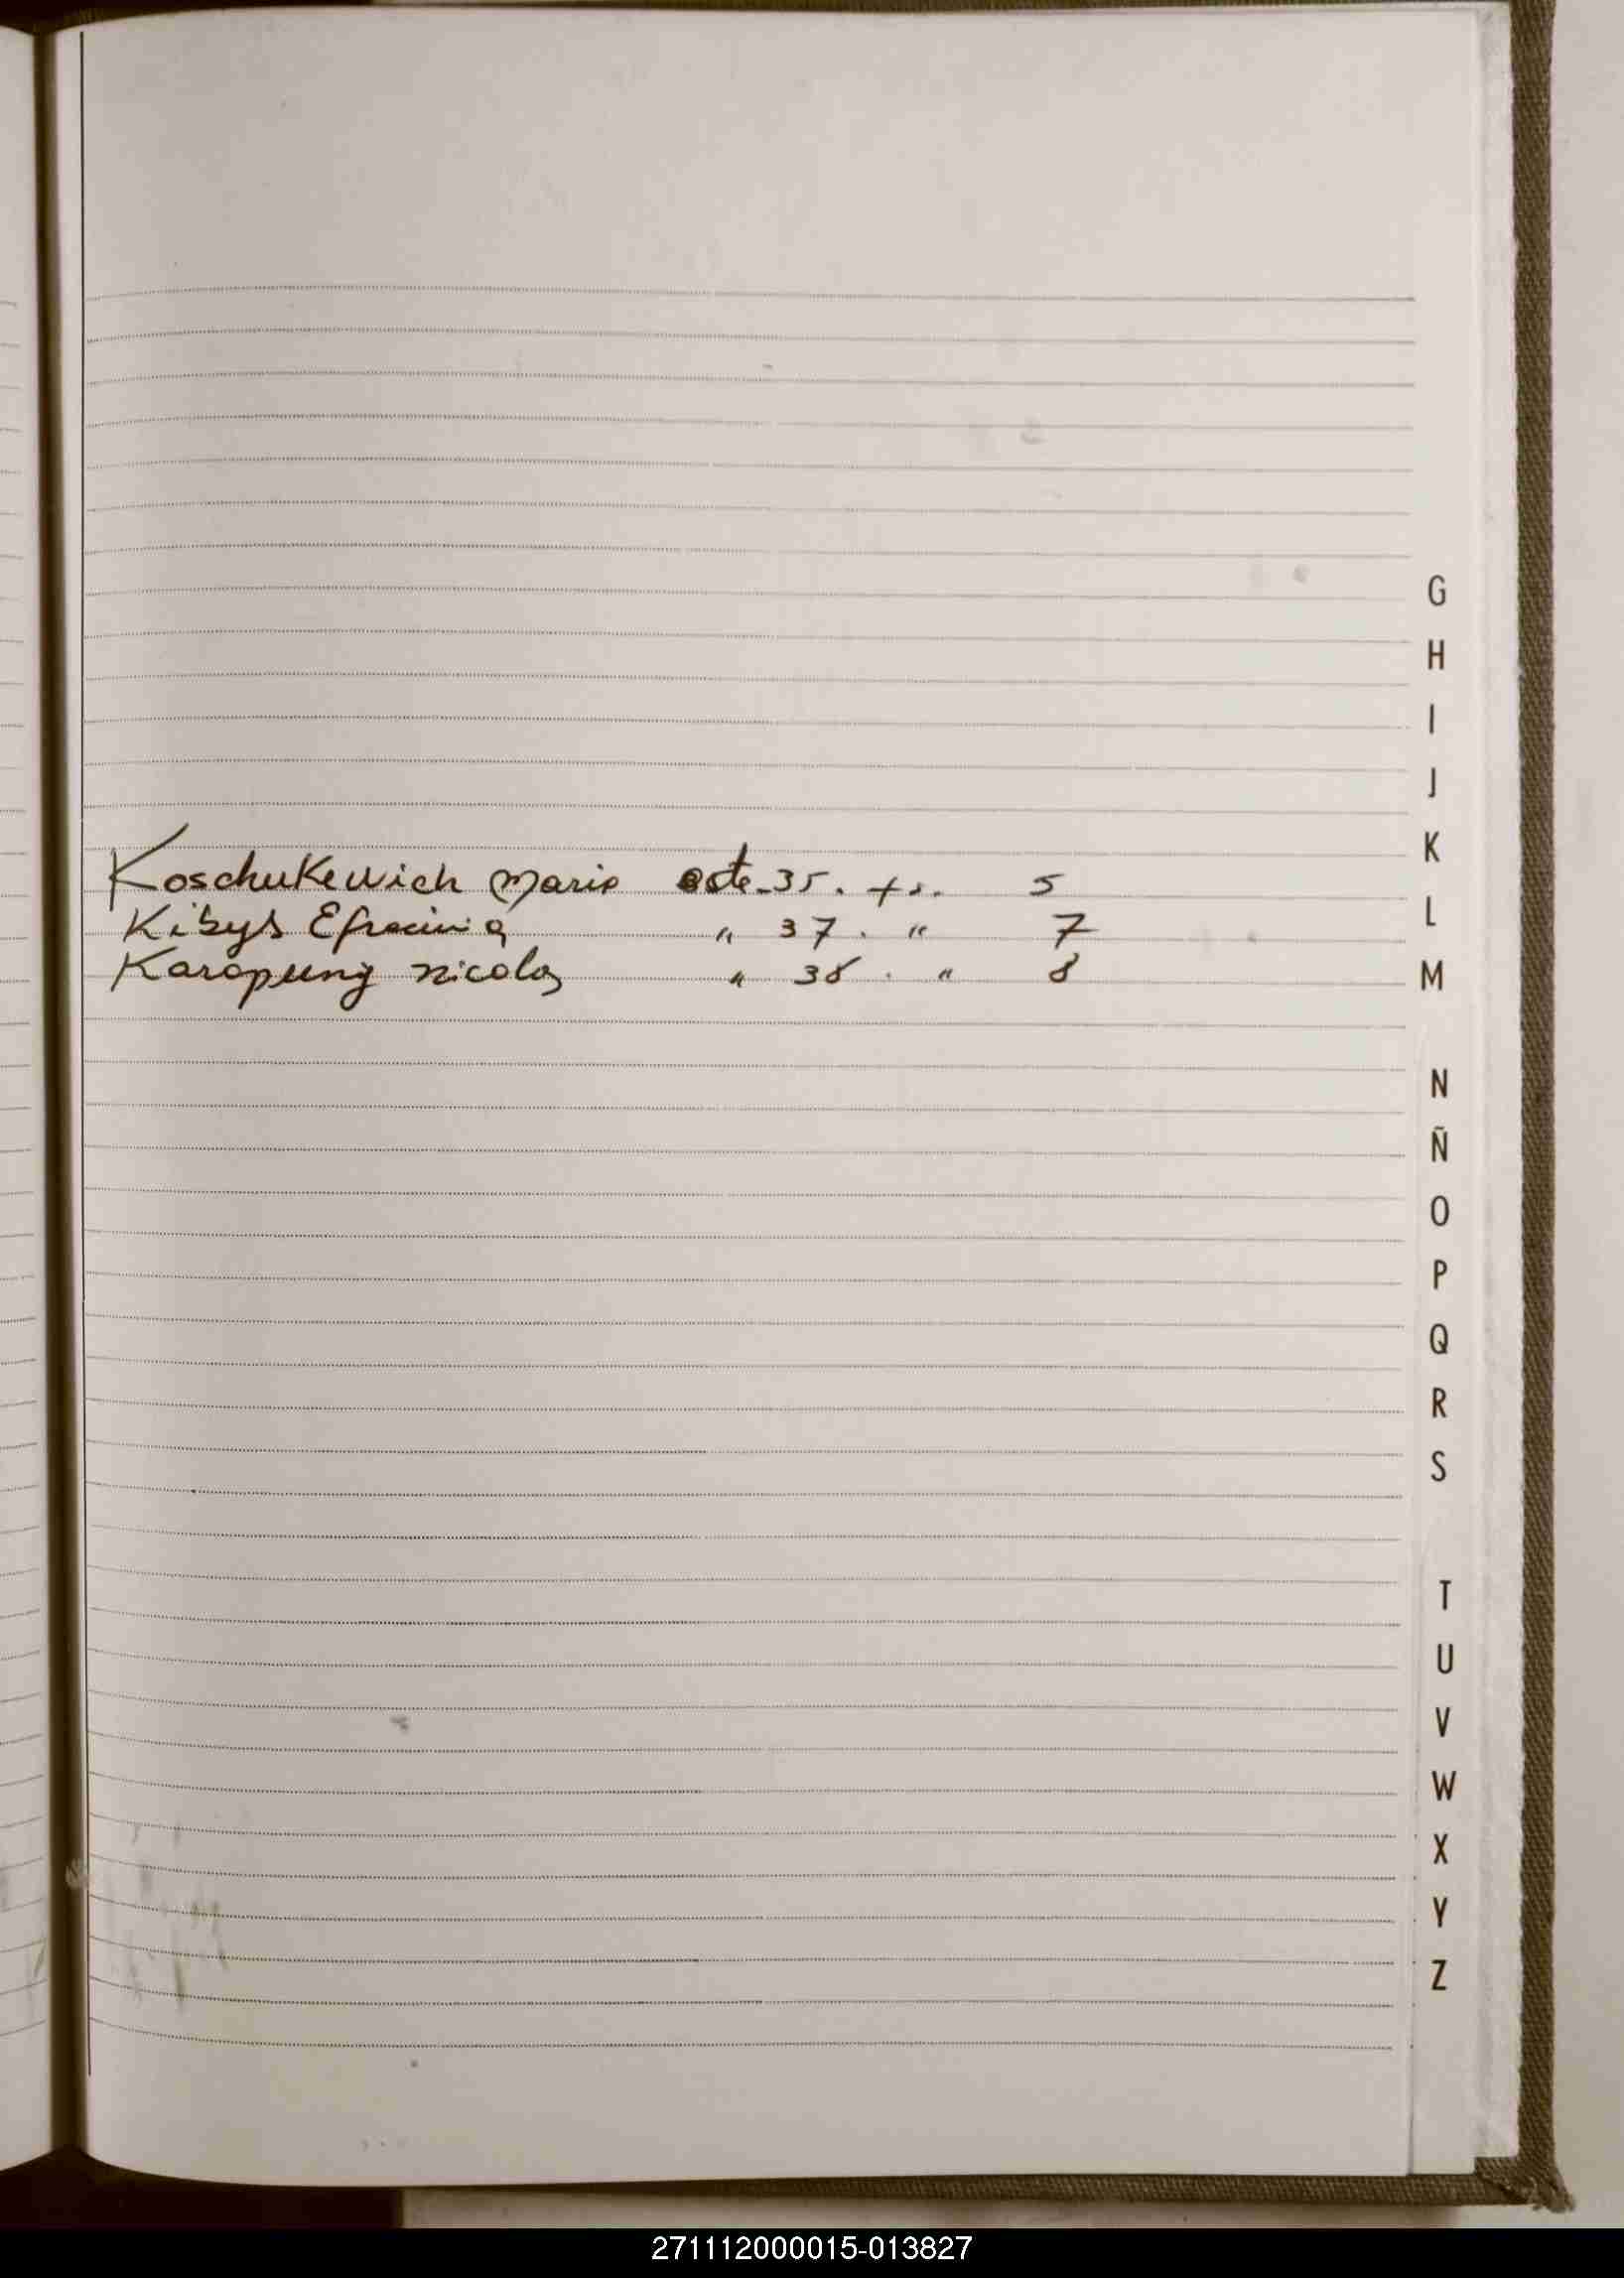 Koschukewich Maria acta-35. fs. 5
Kibys Efrocinia " 37. " 7
Karopung nicolas " 38. " 8
G
H
I
J
K
L
M
N
Ñ
O
P
Q
R
S
T
U
V
W
X
Y
Z
271112000015-013827